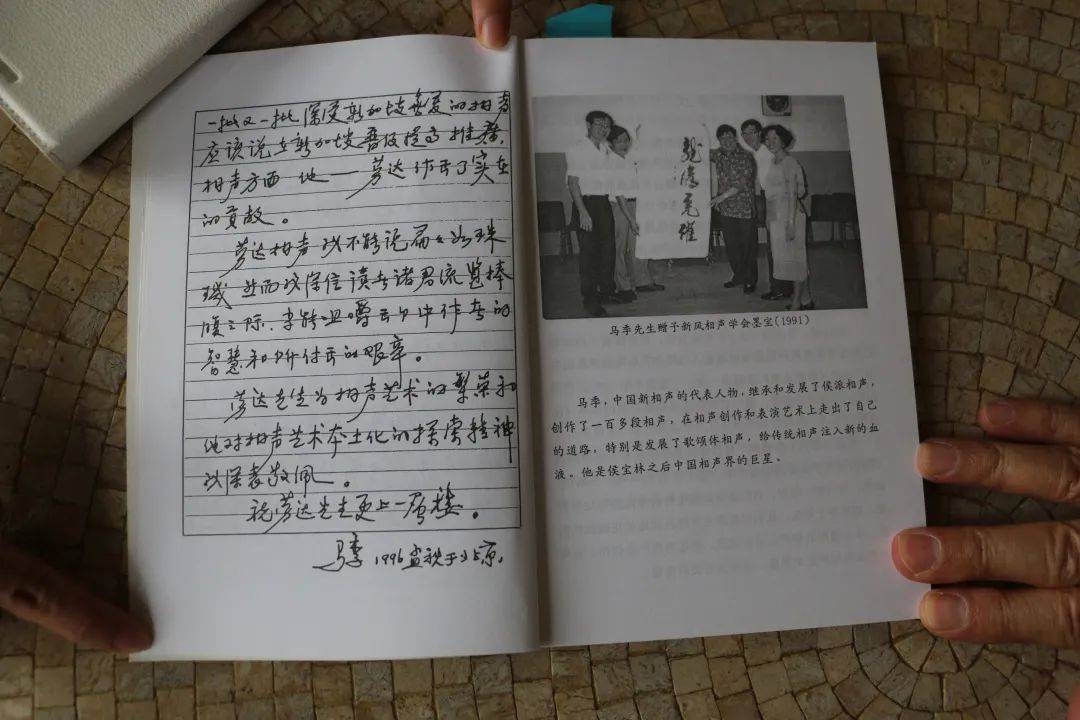 一批又一批深受新加坡喜爱的相声
应该说在新加坡普及提高推广,
相声方面他——劳达作出了实在
的贡献。
劳达相声我不能说篇々如珠
玑 然而我深信读者诸君流览捧
腹之际、才能咀嚼出个中作者的
智慧和所付出的艰辛。
劳达先生为相声艺术的繁荣和
他对相声艺术本土化的探索精神
我深表敬佩。
祝劳达先生更上一层楼。
马季 1996孟秋于北京.
马季先生赠予新风相声学会墨宝(1991)
马季,中国新相声的代表人物,继承和发展了侯派相声,
创作了一百多段相声,在相声创作和表演艺术上走出了自己
的道路,特别是发展了歌颂体相声,给传统相声注入新的血
液。他是侯宝林之后中国相声界的巨星。